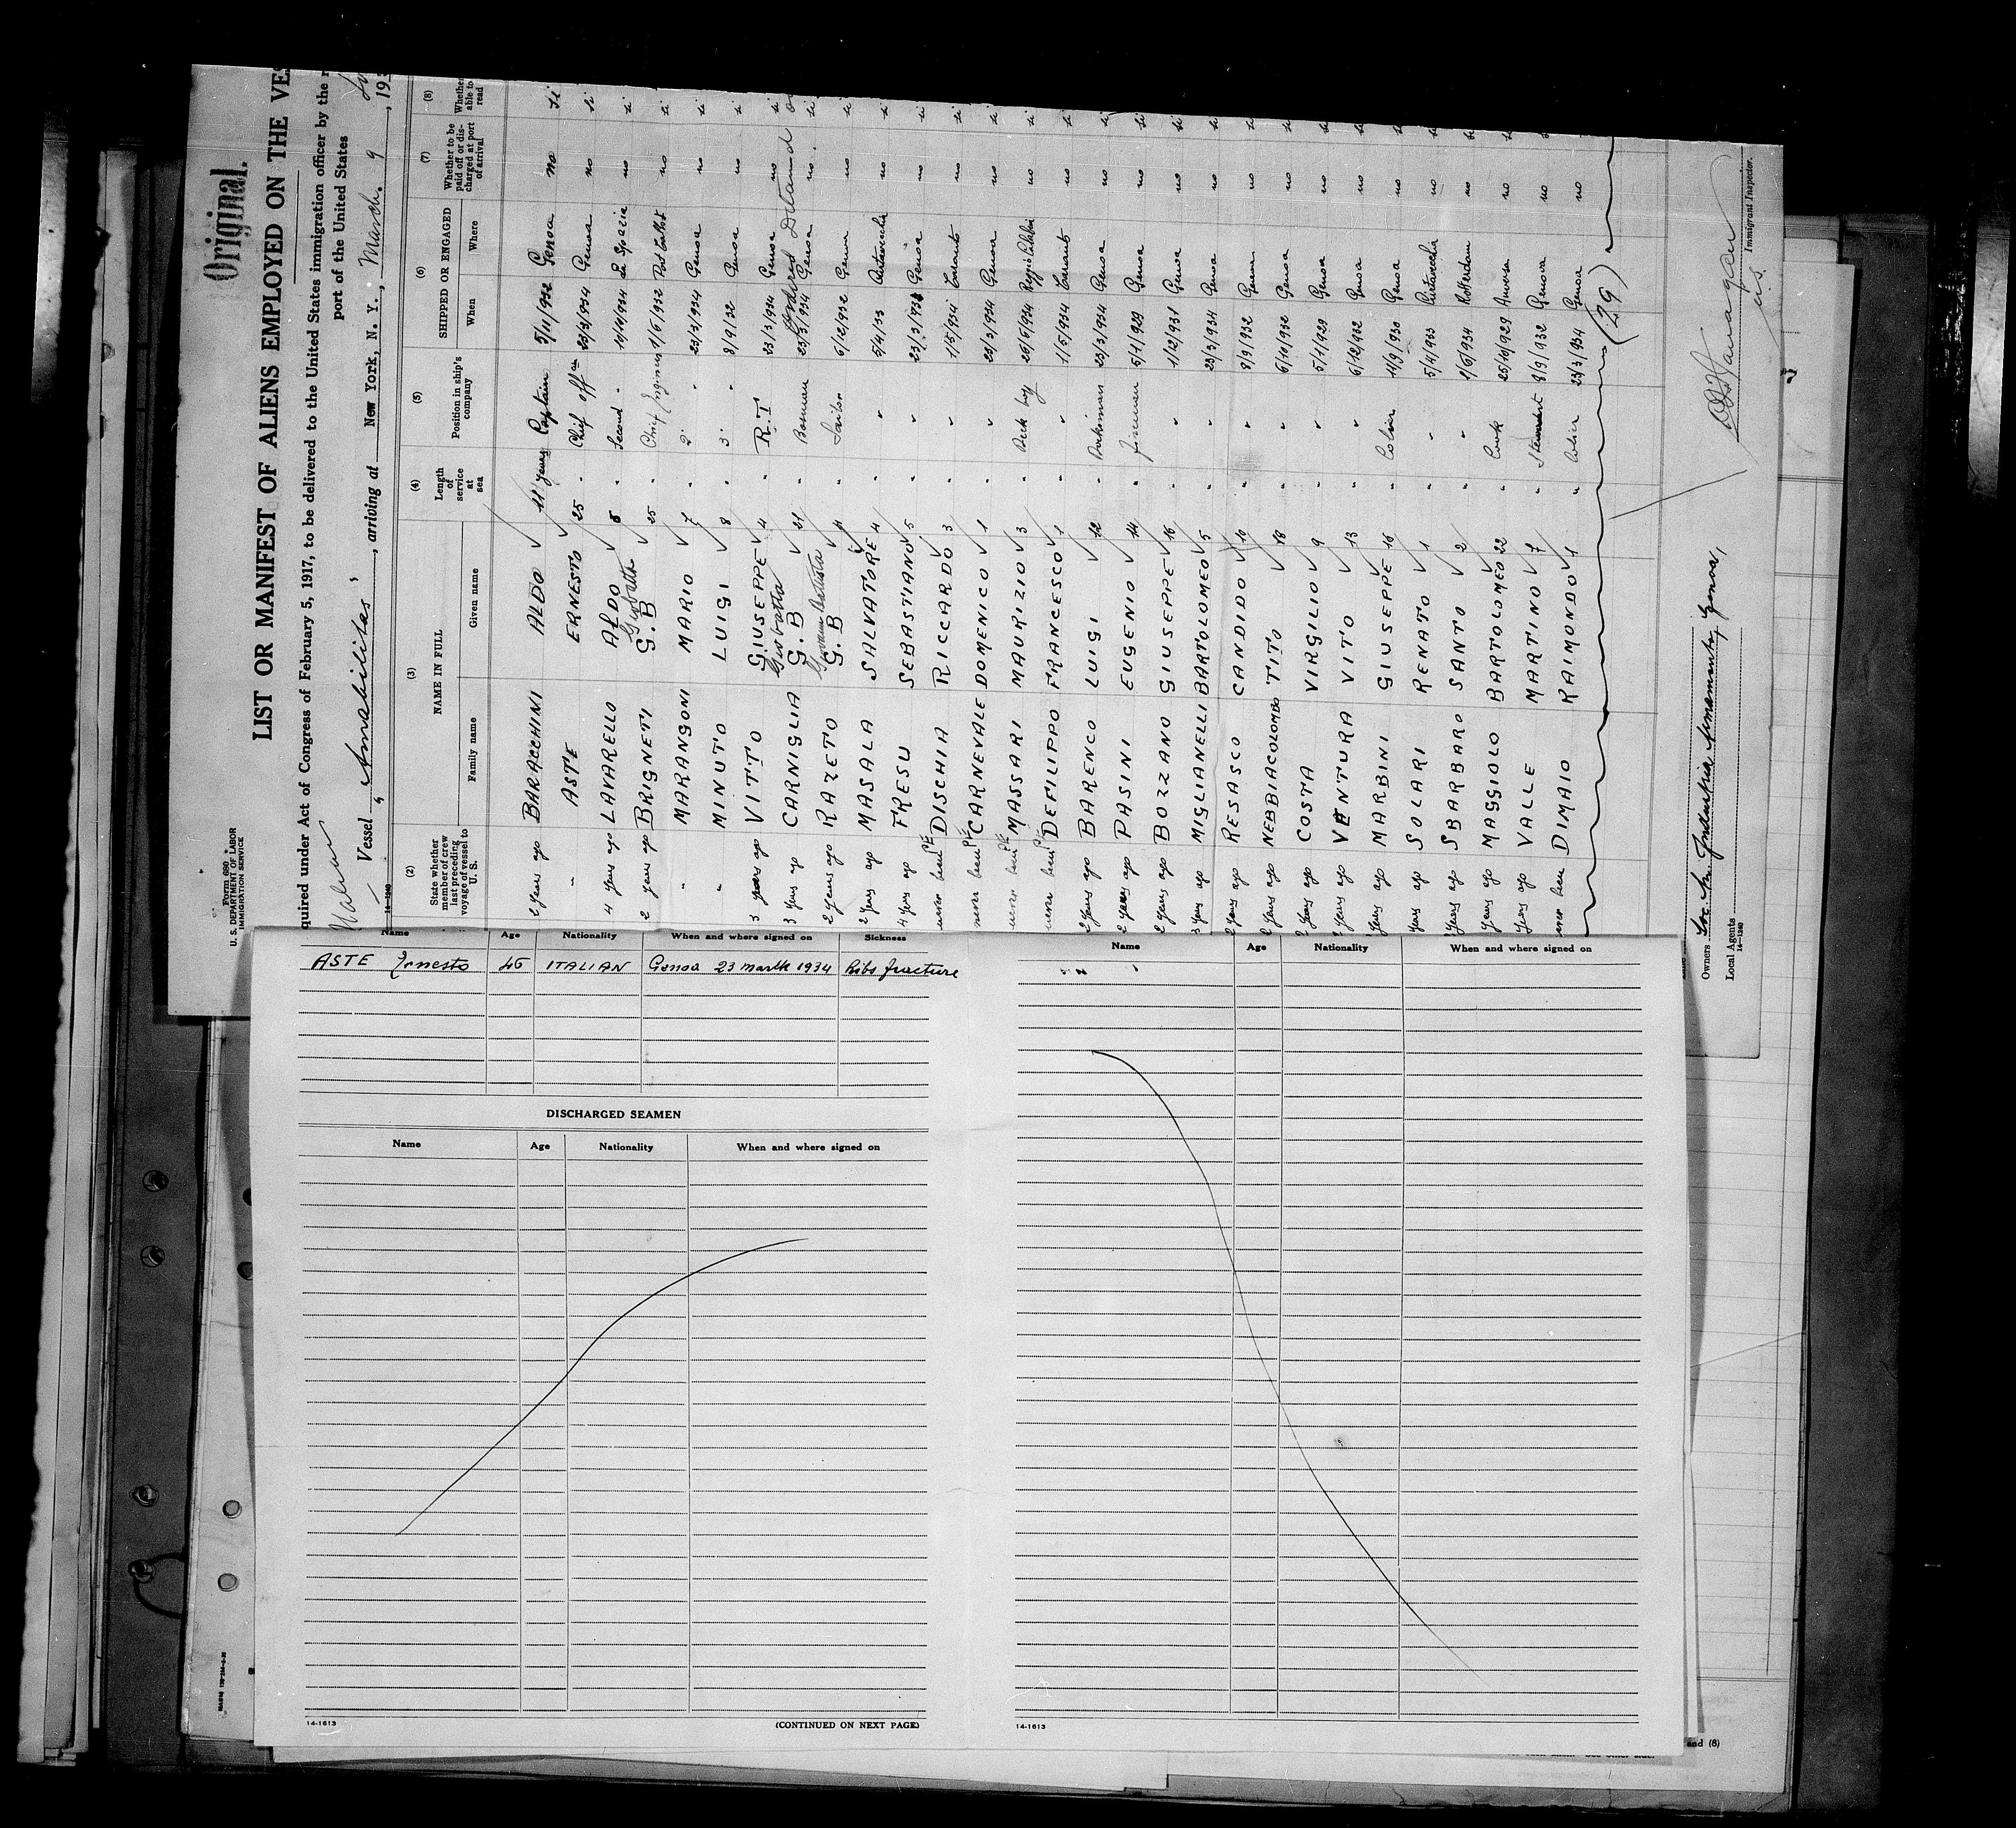 Original.
Form 680
U. S. DEPARTMENT OF LABOR
IMMIGRATION SERVICE
LIST OR MANIFEST OF ALIENS EMPLOYED ON THE VES
quired under Act of Congress of February 5, 1917, to be delivered to the United States immigration officer by the r
port of the United States
Vessel "Amabilitas", arriving at New York, N. Y., March. 9, 193
14-1240
(2) (3) (4) (5) (6) (7) (8)
State whether member of crew last preceding voyage of vessel to U. S. NAME IN FULL Length of service at sea Position in ship's company SHIPPED OR ENGAGED Whether to be paid off or discharged at port of arrival Whether able to read
Family name Given name When Where
2 years ago BARACCHINI ALDO 11 years Captain 5/11/932 Genoa no si
" ASTE ERNESTO 25 " Chief off 23/3/934 Genoa no si
4 years ago LAVARELLO ALDO 5 " Second " La Spezia no si
2 years ago BRIGNETI G. B 25 " Chief no si
" MARANGONI MARIO 7 " 2 " 23/3/934 Genoa no si
" MINUTO LUIGI 8 " 3 " 8/9/32 Genoa no si
3 years ago VITTO GIUSEPPE 4 " R.T 23/3/934 Genoa no si
3 years ago CARNIGLIA G. B 21 " 23/3/934 Genoa no. si
2 years ago RAZETO G. B " Sailor 6/12/932 Genoa no si
2 years ago MASALA SALVATORE 4 " " 5/4/33 no si
4 years ago FRESU SEBASTIANO 5 " " 23/3/934 Genoa no si
never been DISCHIA RICCARDO 3 " " 1/5/934 Taranto no si
never been CARNEVALE DOMENICO 1 " " 23/3/934 Genoa no si
never been MASSARI MAURIZIO 3 " Deck boy no si
never been DEFILIPPO FRANCESCO 1 " " 1/5/934 Taranto no si
2 years ago BARENCO LUIGI 12 " 23/3/934 Genoa no si
2 years ago PASINI EUGENIO 14 " fireman 5/1/929 Genoa no si
2 years ago BOZZANO GIUSEPPE 16 " " 1/12/931 Genoa no si
3 years ago MIGLIANELLI BARTOLOMEO 5 " " 23/3/934 Genoa no
2 years ago RESASCO CANDIDO 10 " " 8/9/932 Genoa no
2 years ago NEBBIACOLOMBO TITO 18 " " 6/10/932 Genoa no
2 years ago COSTA VIRGILIO 9 " " 5/1/929 Genoa no
2 years ago VENTURA VITO 13 " " 6/12/932 Genoa no
years ago MARBINI GIUSEPPE 16 " 11/9/930 Genoa no
years ago SOLARI RENATO 1 " " 5/4/933 no
years ago SBARBARO SANTO 2 " " 1/6/934 Rotterdam no
years ago MAGGIOLO BARTOLOMEO 22 " Cook 25/10/929 Anversa no
years ago VALLE MARTINO 7 " 8/9/932 Genova no
never been DIMAIO RAIMONDO 1 " 23/3/934 Genoa no
(29)
Immigrant Inspector.
Owners
Genoa,
Local Agents
14-1240
Name Age Nationality When and where signed on Sickness
ASTE Ernesto 46 ITALIAN Genoa 23 1934 Ribs fracture
DISCHARGED SEAMEN
Name Age Nationality When and where signed on
14-1613
(CONTINUED ON NEXT PAGE)
Name Age Nationality When and where signed on
14-1613
and (8)